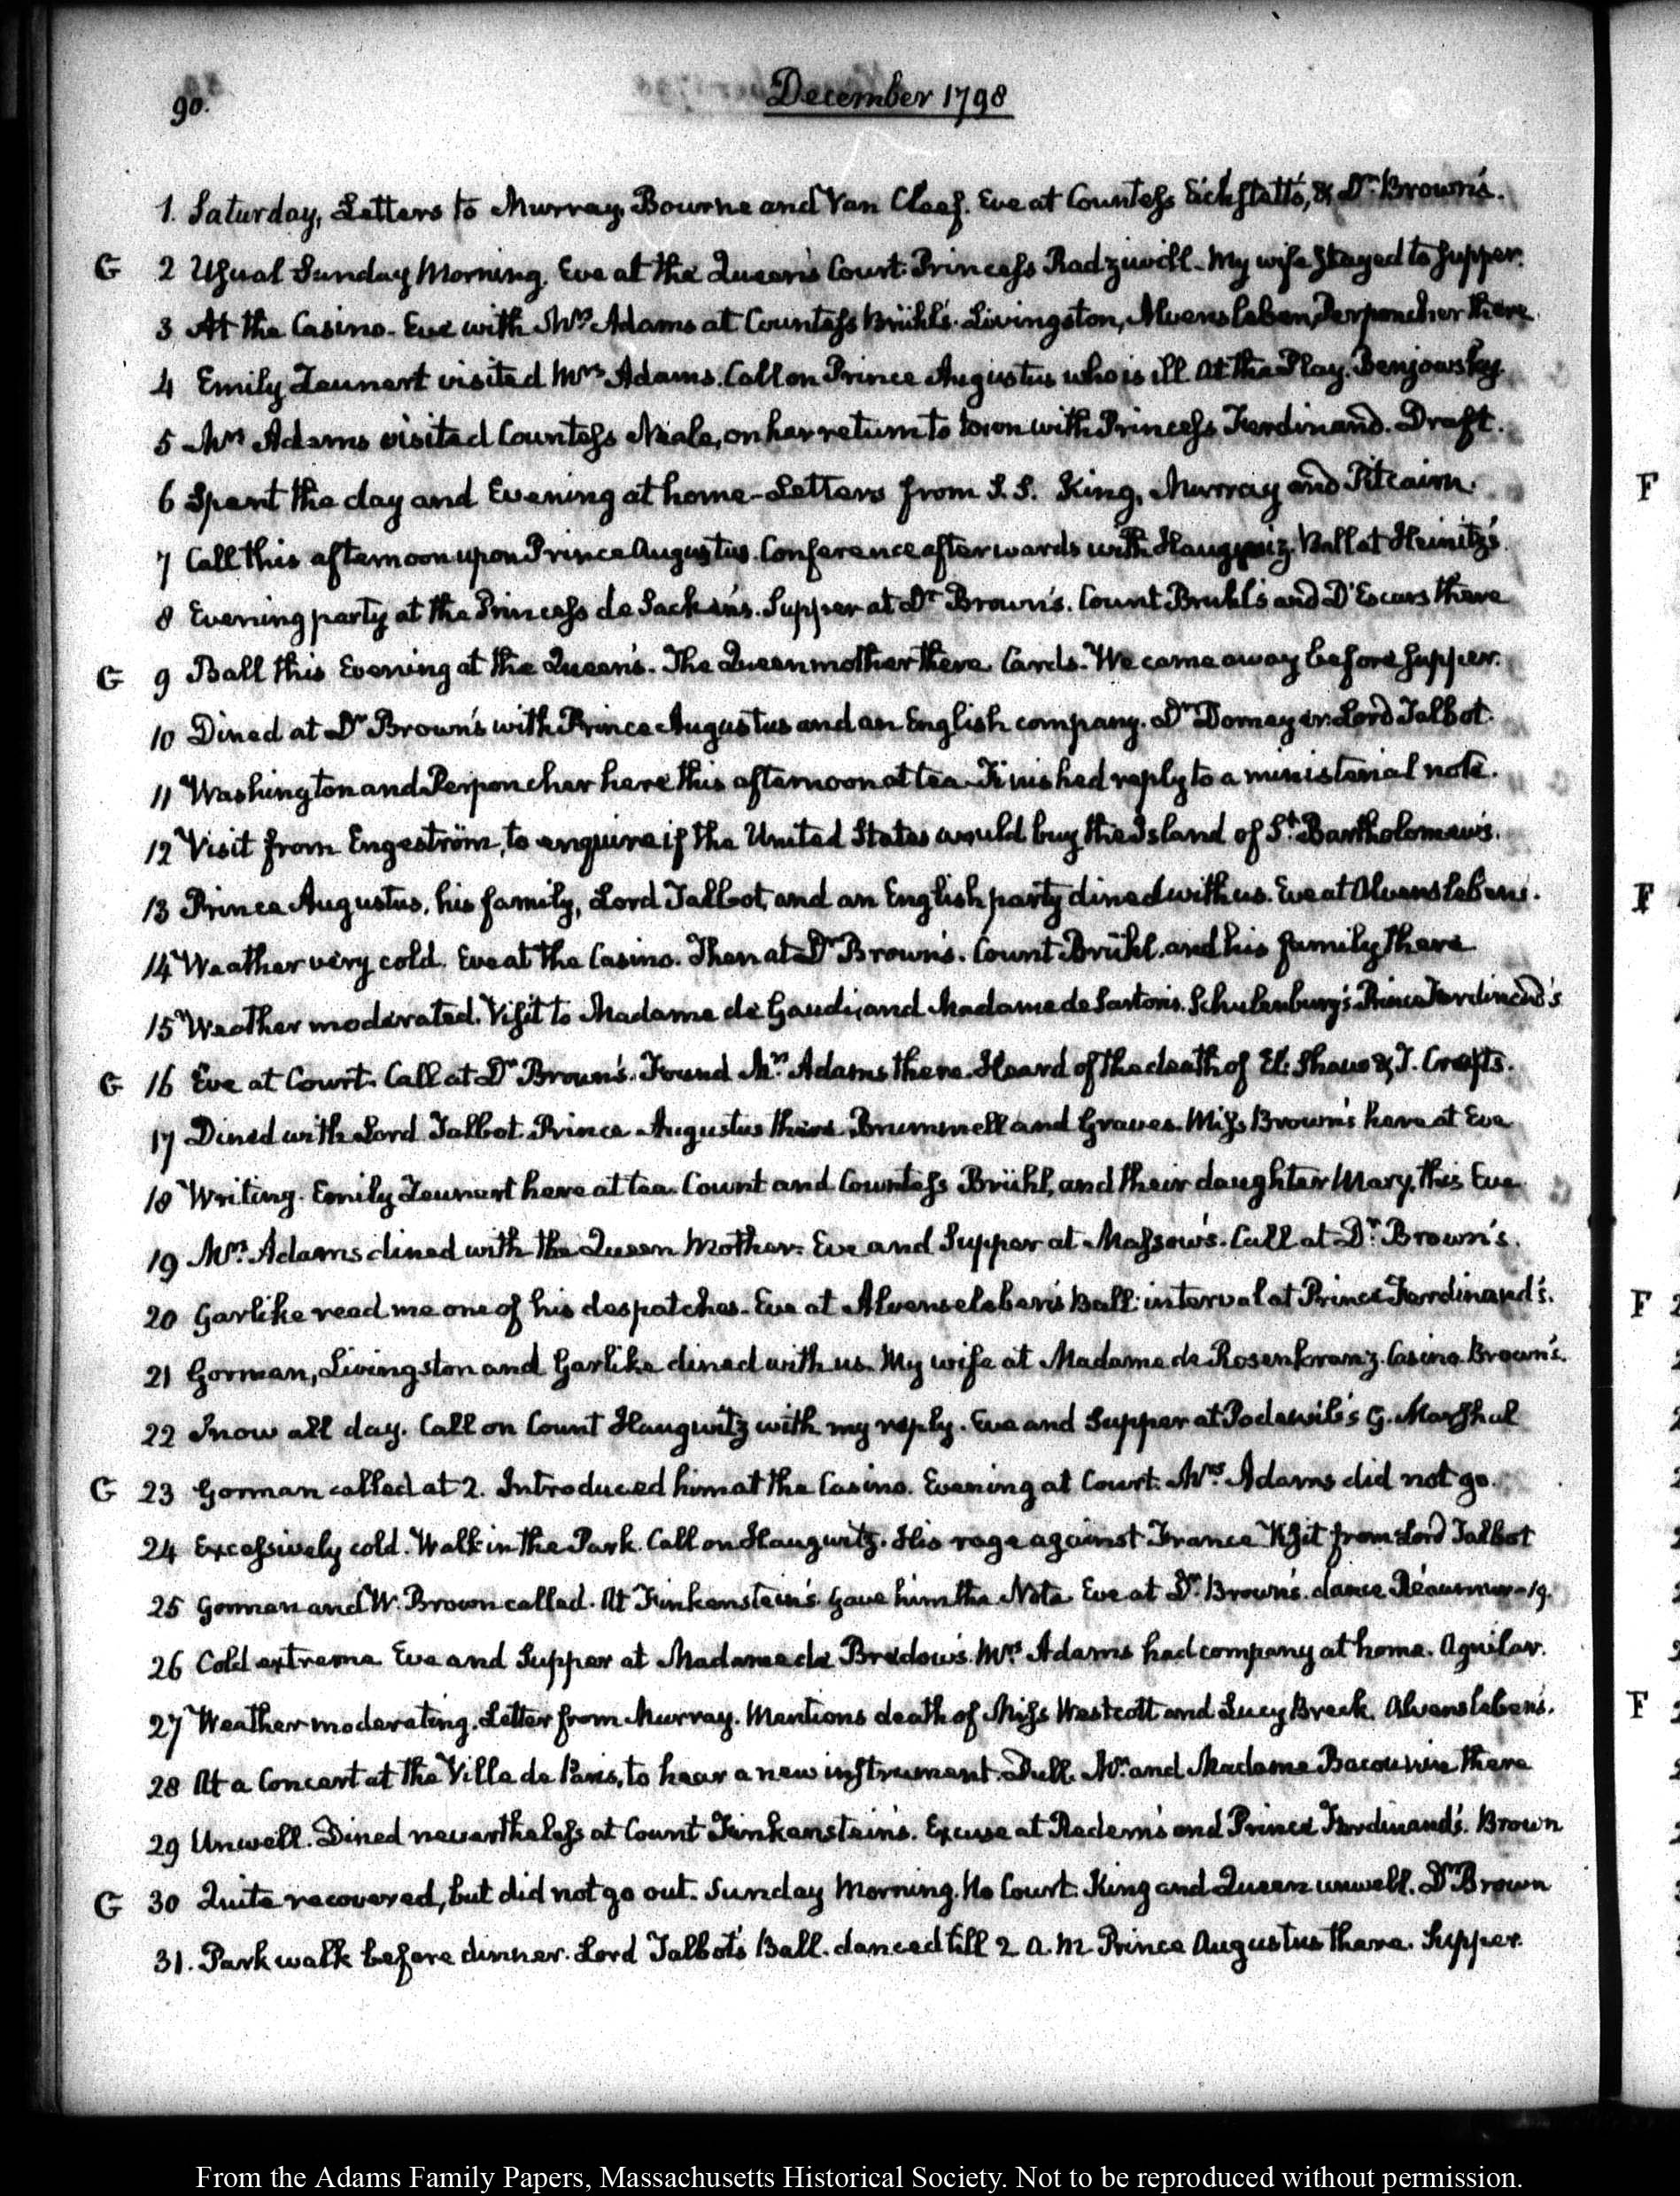 90.
December 1798
1. Saturday, Letters to Murray, Bourne and Van Cleef. Eve at Countess Eickstatt's, & Dr. Brown's.
G 2 Usual Sunday Morning. Eve at the Queen's Court. Princess Radziwill. My wife stayed to supper.
3 At the Casino. Eve with Mrs Adams at Countess Brühl's. Livingston, Alvensleben, Perponcher there
4 Emily Zeunert visited Mrs Adams. Call on Prince Augustus who is ill. At the Play. Benjowsky.
5 Mrs Adams visited Countess Neale, on her return to town with Princess Ferdinand. Draft.
6 Spent the day and Evening at home. Letters from S.S. King, Murray and Pitcairn.
7 Call this afternoon upon Prince Augustus. Conference afterwards with Haugwitz. Ball at Heinitz's.
8 Evening party at the Princess de Sacken's. Supper at Dr Brown's. Count Bruhl's and D'Escars there
G 9 Ball this Evening at the Queen's. The Queen mother there. Cards. We came away before supper.
10 Dined at Dr Brown's with Prince Augustus and an English company. Dr Domeyer. Lord Talbot.
11 Washington and Perponcher here this afternoon at tea. Finished reply to a ministerial note.
12 Visit from Engeström, to enquire if the United States would buy the Island of St. Bartholomew's.
13 Prince Augustus, his family, Lord Talbot, and an English party dined with us. Eve at Alvensleben's.
14 Weather very cold. Eve at the Casino. Then at Dr Brown's. Count Brühl, and his family there
15 Weather moderated. Visit to Madame de Gaudi, and Madame de Sartoris. Schulenburg's. Prince Ferdinand's
G 16 Eve at Court. Call at Dr Brown's. Found Mrs Adams there. Heard of the death of El: Shaw & T. Crafts.
17 Dined with Lord Talbot. Prince Augustus there. Brummell and Graves. Miss Brown's here at Eve
18 Writing. Emily Zeunert here at tea. Count and Countess Brühl, and their daughter Mary, this Eve
19 Mrs. Adams dined with the Queen Mother. Eve and Supper at Massow's. Call at Dr. Brown's.
20 Garlike read me one of his despatches. Eve at Alvensleben's Ball: interval at Prince Ferdinand's.
21 Gorman, Livingston and Garlike dined with us. My wife at Madame de Rosenkranz. Casino. Brown's.
22 Snow all day. Call on Count Haugwitz with my reply. Eve and Supper at Podewils's G. Marshal
G 23 Gorman called at 2. Introduced him at the Casino. Evening at Court. Mrs. Adams did not go.
24 Excessively cold. Walk in the Park. Call on Haugwitz. His rage against France. Visit from Lord Talbot
25 Gorman and W. Brown called. At Finkenstein's. Gave him the Note. Eve at Dr. Brown's. dance. Réaumur -19.
26 Cold extreme. Eve and Supper at Madame de Bredow's. Mrs Adams had company at home. Aguilar.
27 Weather moderating. Letter from Murray. Mentions death of Miss Westcott and Lucy Breck. Alvensleben's.
28 At a Concert at the Ville de Paris, to hear a new instrument. Dull. Mr. and Madame there
29 Unwell. Dined nevertheless at Count Finkenstein's. Excuse at Redern's and Prince Ferdinand's. Brown
G 30 Quite recovered, but did not go out. Sunday Morning. No Court. King and Queen unwell. Dr Brown
31. Park walk before dinner. Lord Talbot's Ball. danced till 2 A.M. Prince Augustus there. Supper.
F
F
F
F
From the Adams Family Papers, Massachusetts Historical Society. Not to be reproduced without permission.